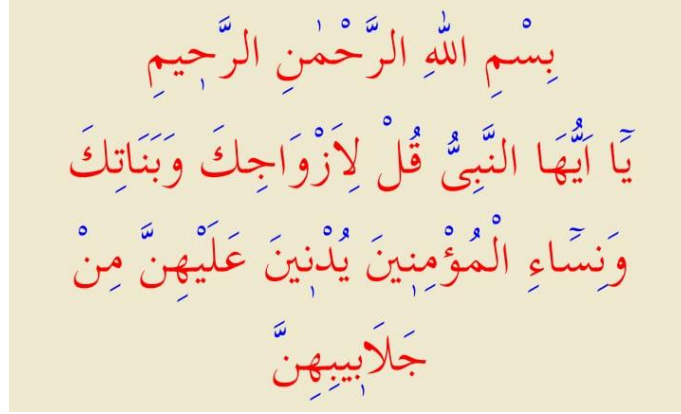 بِسْمِ اللّٰهِ الرَّحْمٰنِ الرَّحٖيمِ
يَٓا اَيُّهَا النَّبِىُّ قُلْ لِاَزْوَاجِكَ وَبَنَاتِكَ
وَنِسَٓاءِ الْمُؤْمِنٖينَ يُدْنٖينَ عَلَيْهِنَّ مِنْ
جَلَابٖيبِهِنَّ